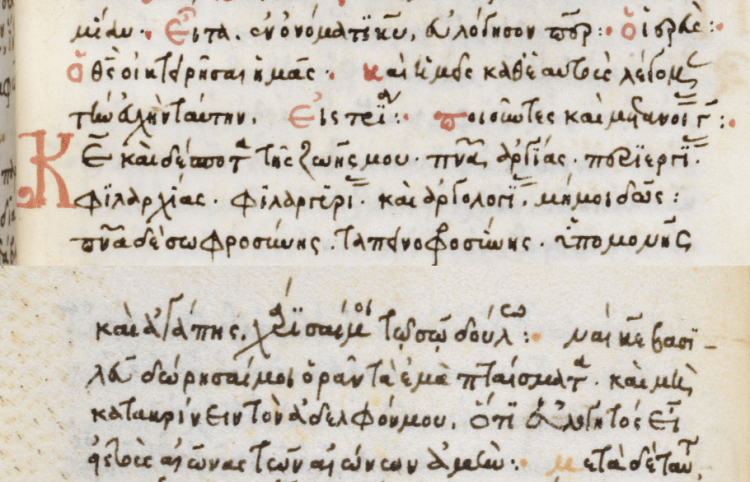 μίαν. Εἶτα, ἐν ὀνόματι κυ, εὐλόγησον πσρ: Ὁ ἱερεὺς:
Ὁ θς οἰκτειρήσαι ἡμᾶς. καὶ ἡμεῖς καθ' ἑαυτοὺς λέγομεν
τὴν εὐχὴν ταύτην. Εἰς τρεῖς: ποιοῦντες καὶ μετανοίας γ:
Κε καὶ δέσποτα τῆς ζωῆς μου. πνα ἀργίας. περιεργίας.
φιλαρχίας. φιλαργυρίας. καὶ ἀργολογίας, μή μοι δῶς:
πνα δὲ σωφροσύνης. ταπεινοφροσύνης. ὑπομονῆς
καὶ ἀγάπης, χάρισαί μοι τῷ σῷ δούλῳ: ναὶ κε βασι-
λεῦ δώρησαί μοι ὁρᾶν τὰ ἐμὰ πταίσματα. καὶ μὴ
κατακρίνειν τὸν ἀδελφόν μου. ὅτι εὐλογητὸς εἶ
εἰς τοὺς αἰῶνας τῶν αἰώνων ἀμήν: μετὰ δὲ ταῦτα